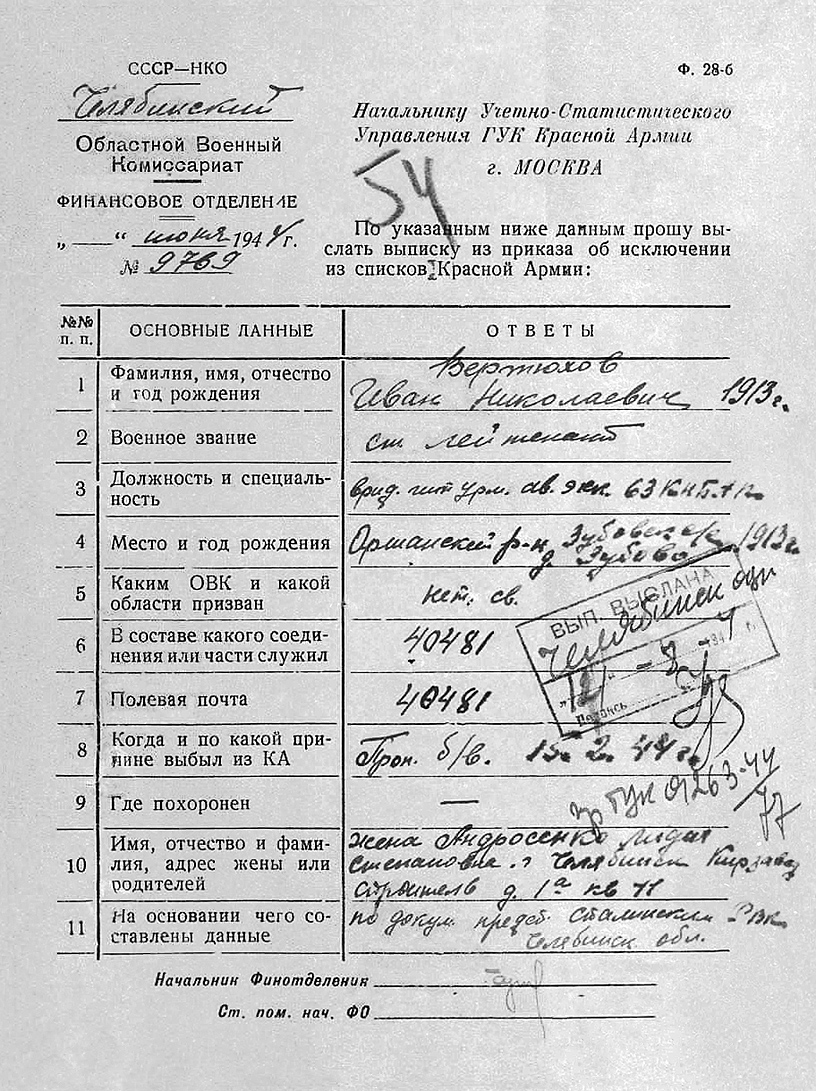 СССР—НКО
Ф. 28-б
Челябинский
Областной Военный
Комиссариат
ФИНАНСОВОЕ ОТДЕЛЕНИЕ
„ “ июня 1944 г.
№ 9769
Начальнику Учетно-Статистического
Управления ГУК Красной Армии
г. МОСКВА
54
По указанным ниже данным прошу вы-
слать выписку из приказа об исключении
из списков Красной Армии:
№№ п. п. ОСНОВНЫЕ ДАННЫЕ ОТВЕТЫ
1 Фамилия, имя, отчество
и год рождения
Вертюхов
Иван Николаевич 1913 г.
2 Военное звание
ст лейтенант
3 Должность и специаль-
ность
врид. ав. эск. 63
4 Место и год рождения
Оршанский р-н Зубовск 1913 г.
д. Зубово
5 Каким ОВК и какой
области призван
нет. св.
6 В составе какого соеди-
нения или части служил
40481
7 Полевая почта
40481
8 Когда и по какой при-
чине выбыл из КА
Проп. б/в. 15. 2. 44 г.
9 Где похоронен
—
10 Имя, отчество и фами-
лия, адрес жены или
родителей
жена Андросенко Лидия
Степановна г Челябинск Кирзавод
строитель д. 1а кв 11
11 На основании чего со-
ставлены данные
по докум. предст. Сталинским РВК
Челябинск обл.
ВЫП. ВЫСЛАНА
Челябинск
Подпись
пр ГУК 01263-44
77
Начальник Финотделения
Ст. пом. нач. ФО